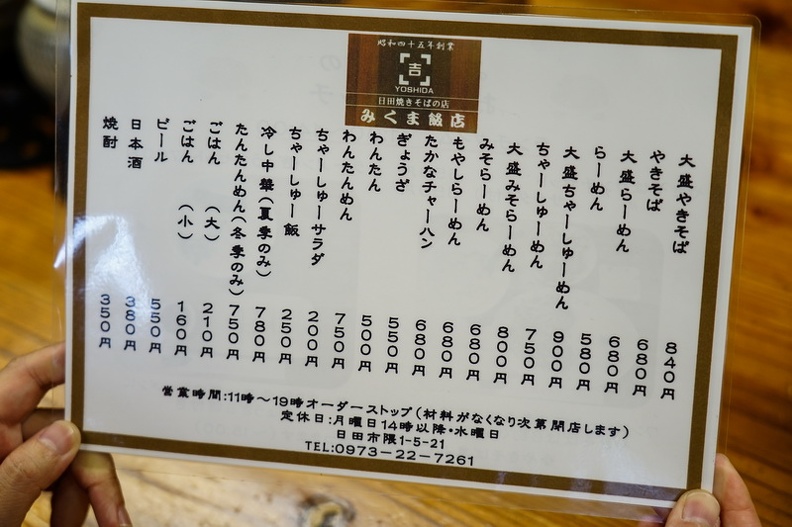 昭和四十五年創業
吉
YOSHIDA
日田焼きそばの店
みくま飯店
大盛やきそば 840円
やきそば 680円
大盛らーめん 680円
らーめん 580円
大盛ちゃーしゅーめん 900円
ちゃーしゅーめん 750円
大盛みそらーめん 800円
みそらーめん 680円
もやしらーめん 680円
たかなチャーハン 680円
ぎょうざ 550円
わんたん 500円
わんたんめん 750円
ちゃーしゅーサラダ 200円
ちゃーしゅー飯 250円
冷し中華(夏季のみ) 780円
たんたんめん(冬季のみ) 750円
ごはん (大) 210円
ごはん (小) 160円
ビール 550円
日本酒 380円
焼酎 350円
営業時間:11時〜19時オーダーストップ(材料がなくなり次第閉店します)
定休日:月曜日14時以降・水曜日
日田市隈1-5-21
TEL:0973-22-7261